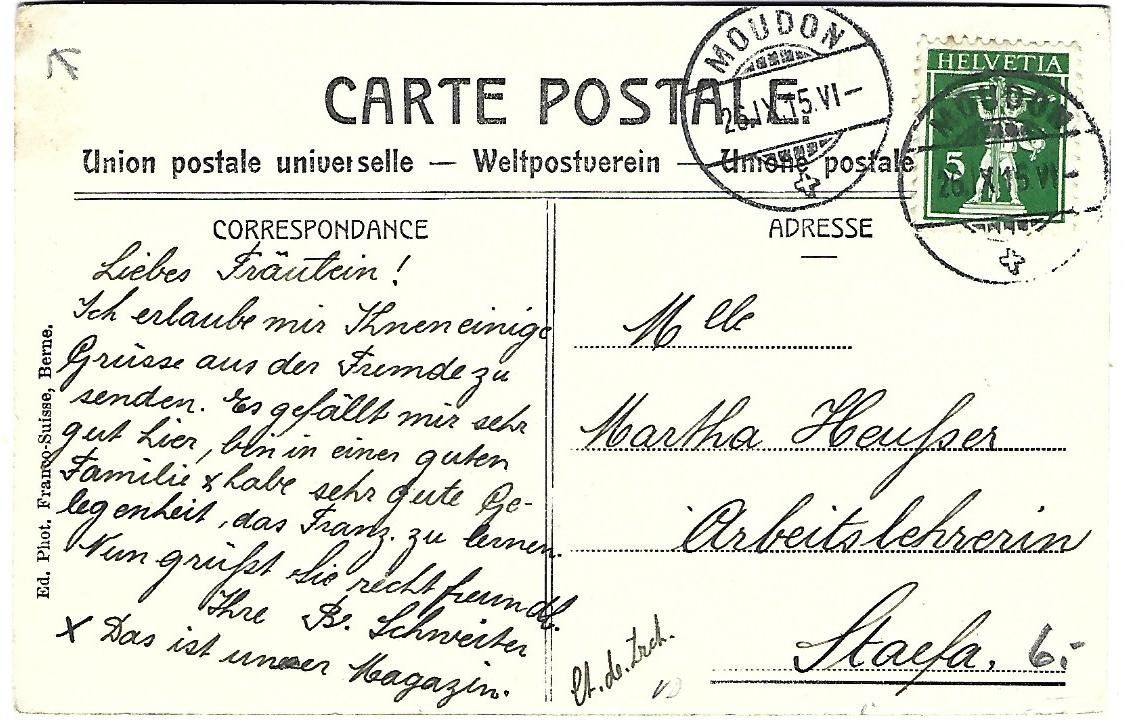 CARTE POSTALE.
Union postale universelle — Weltpostverein — Unione postale
MOUDON
26.IX.15.VI—
HELVETIA
5
MOUDON
26.IX.15.VI—
CORRESPONDANCE
Liebes Fräulein!
Ich erlaube mir Ihnen einige
Grüsse aus der Fremde zu
senden. Es gefällt mir sehr
gut hier, bin in einer guten
Familie & habe sehr gute Ge-
legenheit, das Franz. zu lernen.
Nun grüßt Sie recht freundl.
Ihre B. Schweiter
x Das ist unser Magazin.
Ed. Phot. Franco-Suisse, Berne.
ADRESSE
Mlle
Martha Heußer
Arbeitslehrerin
Staefa.
6.-
Ct. de Zrch.